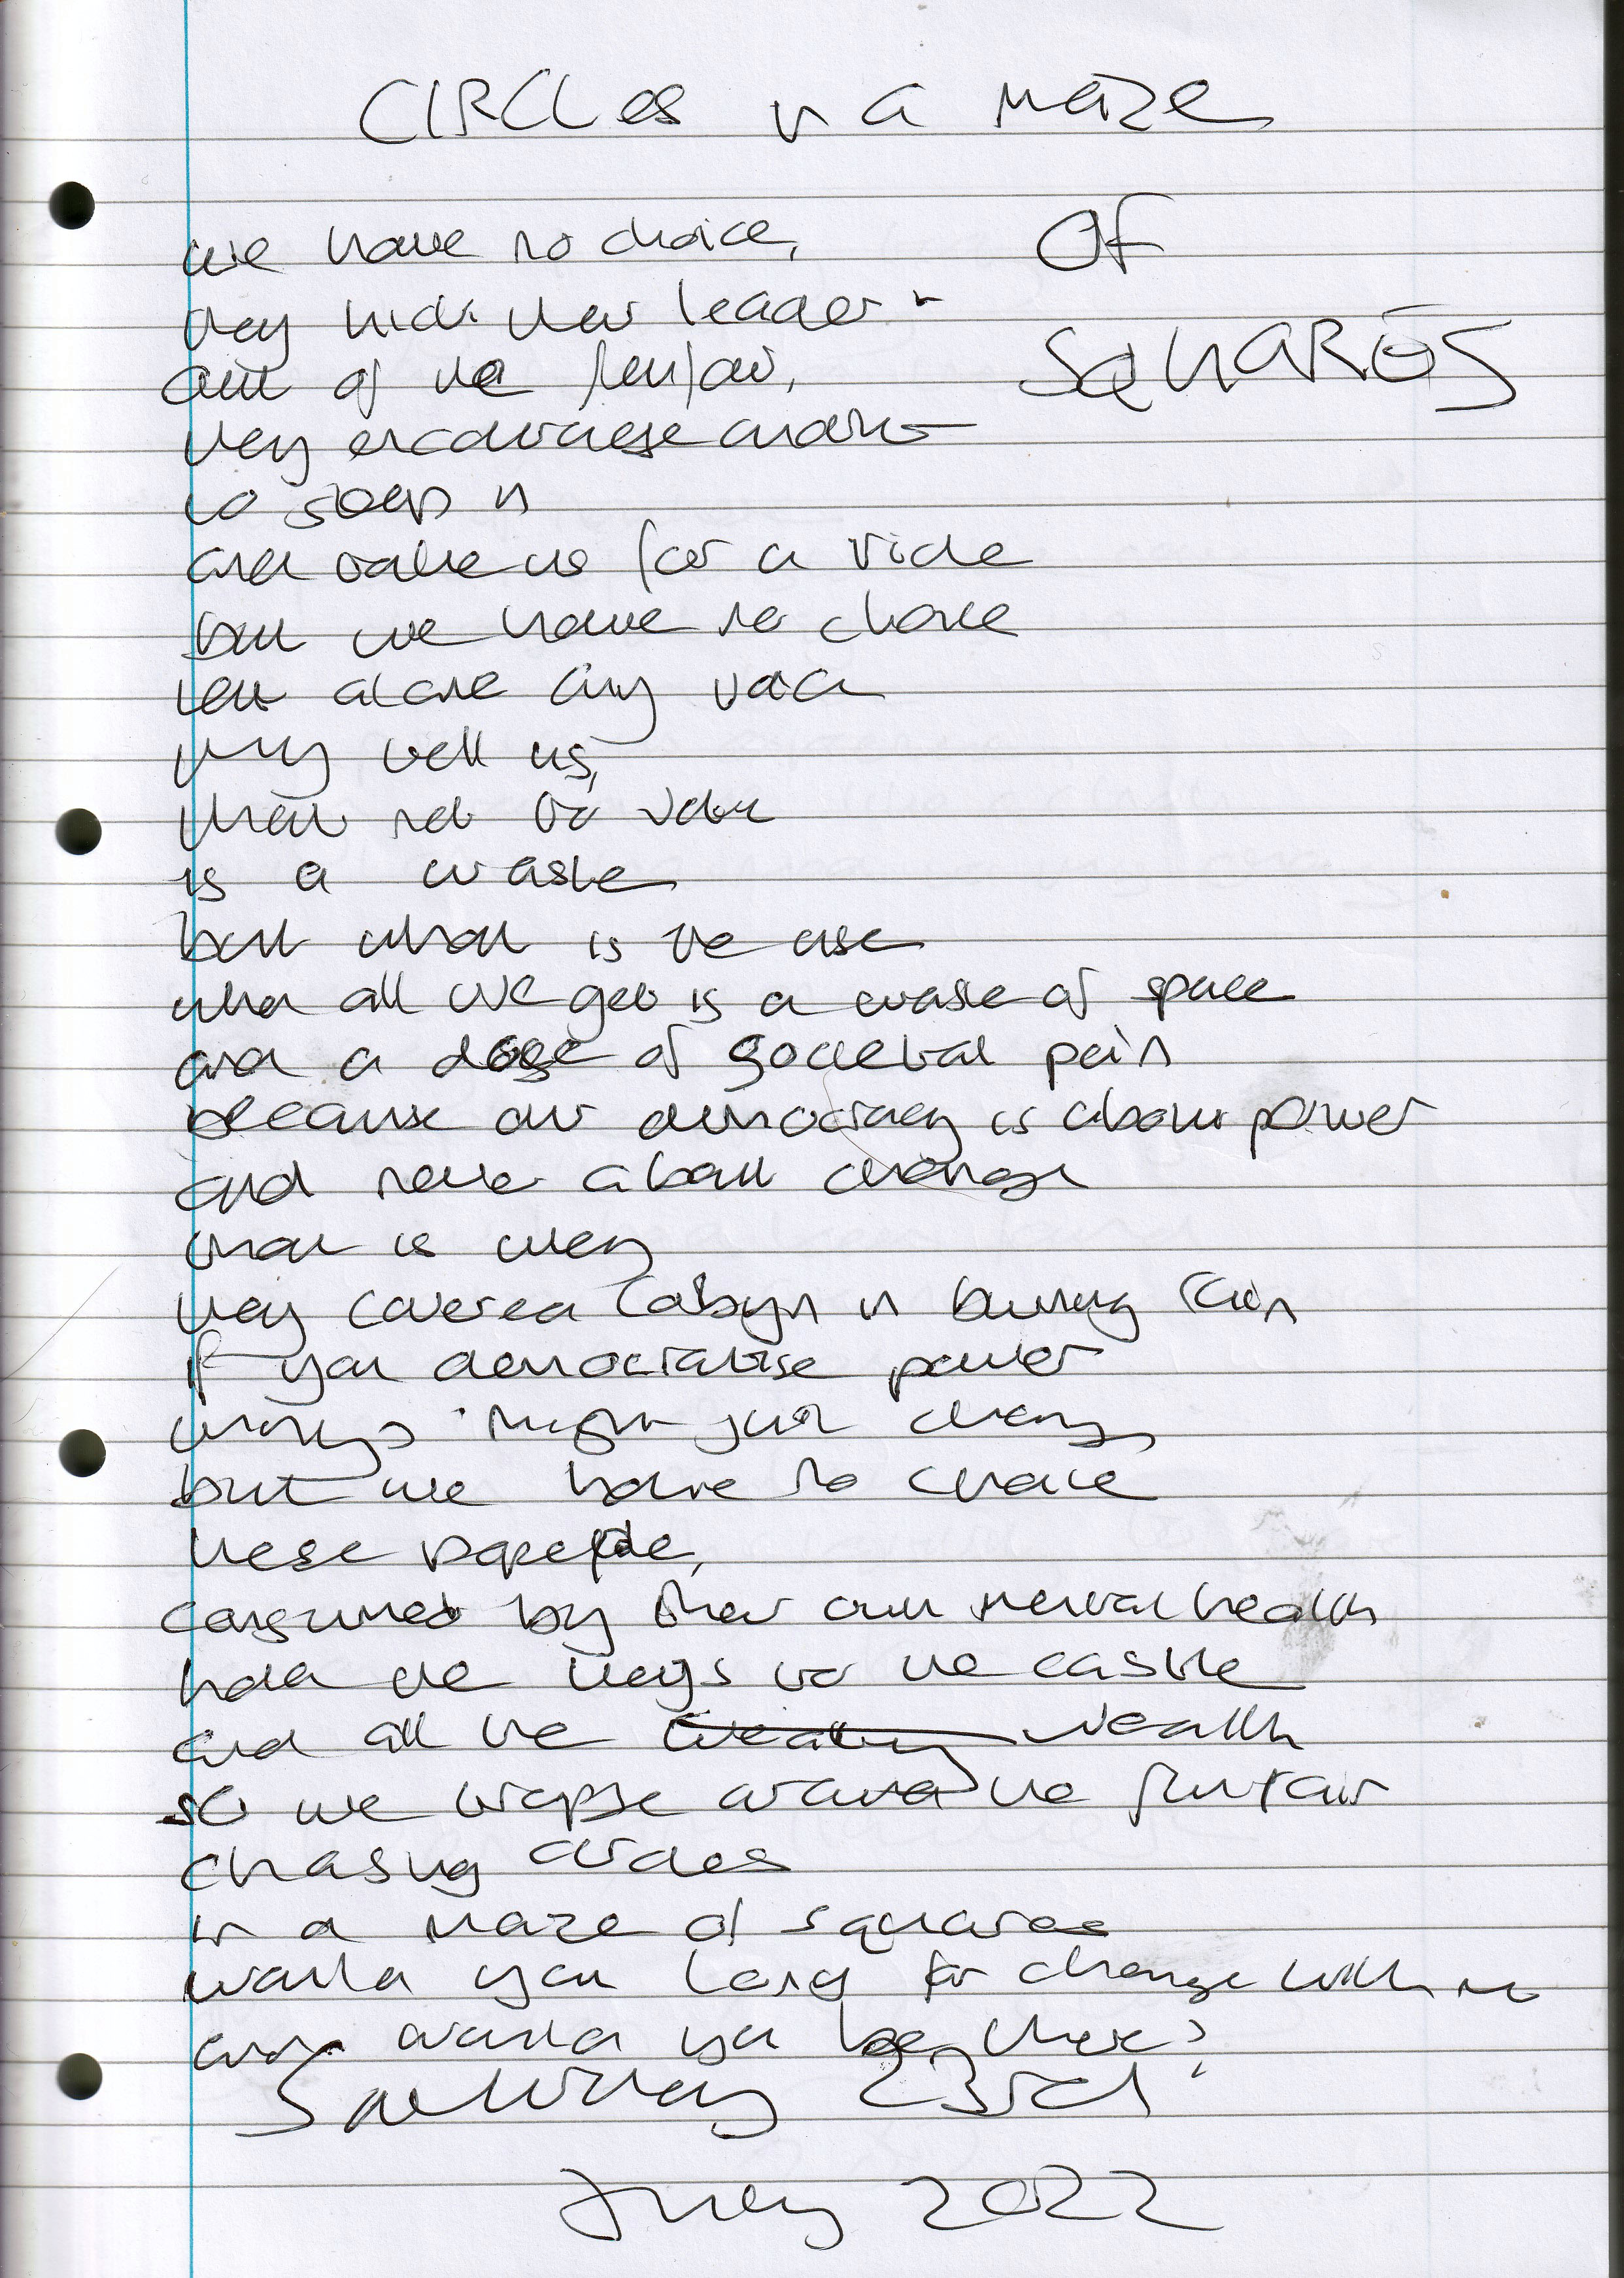 CIRCLES in a maze
of
SQUARES
we have no choice,
they kick their leader
out of the funfair,
they encourage another
to step in
and take us for a ride
but we have no choice
let alone any voice
they tell us,
that not to vote
is a waste
but what is the use
when all we get is a waste of space
and a dose of societal pain
because our democracy is about power
and never about change
that is why
they covered Corbyn in burning rain
if you democratise power
things might just change
but we have no choice
these people,
consumed by their own mental health
hold the keys to the castle
and all the wealth
so we traipse around the funfair
chasing circles
in a maze of squares
would you long for change with me
and would you be there?
Saturday 23rd
July 2022